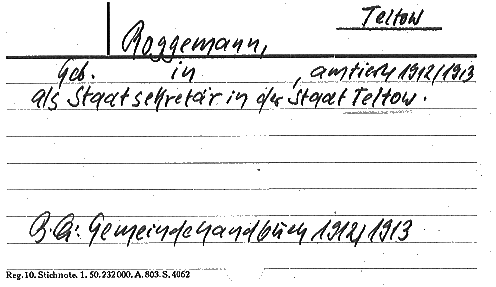 Teltow
Roggemann,
Geb. in , amtiert 1912/1913
als Staatsekretär in der Staat Teltow.
B.Qu: Gemeindehandbuch 1912/1913
Reg. 10. Stichnote. 1. 50. 232 000. A. 803. S. 4062